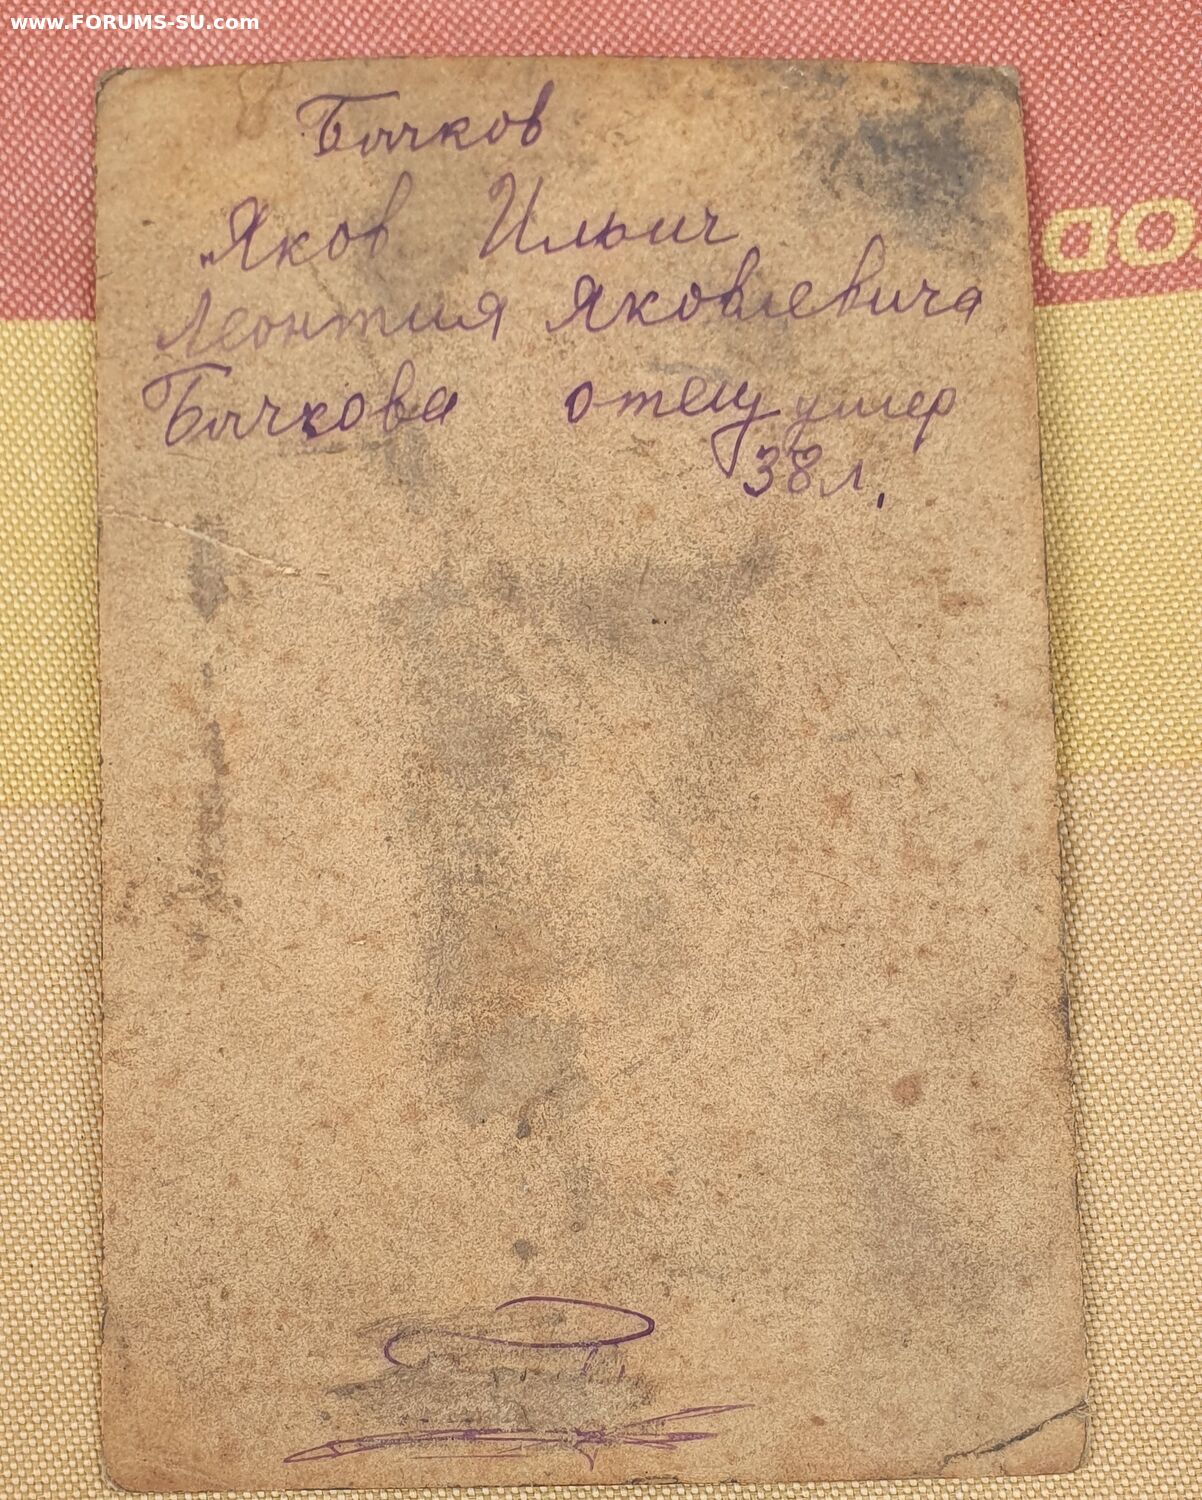 www.FORUMS-SU.com
Бычков
Яков Ильич
Леонтия Яковлевича
Бычкова отец умер
38 л.